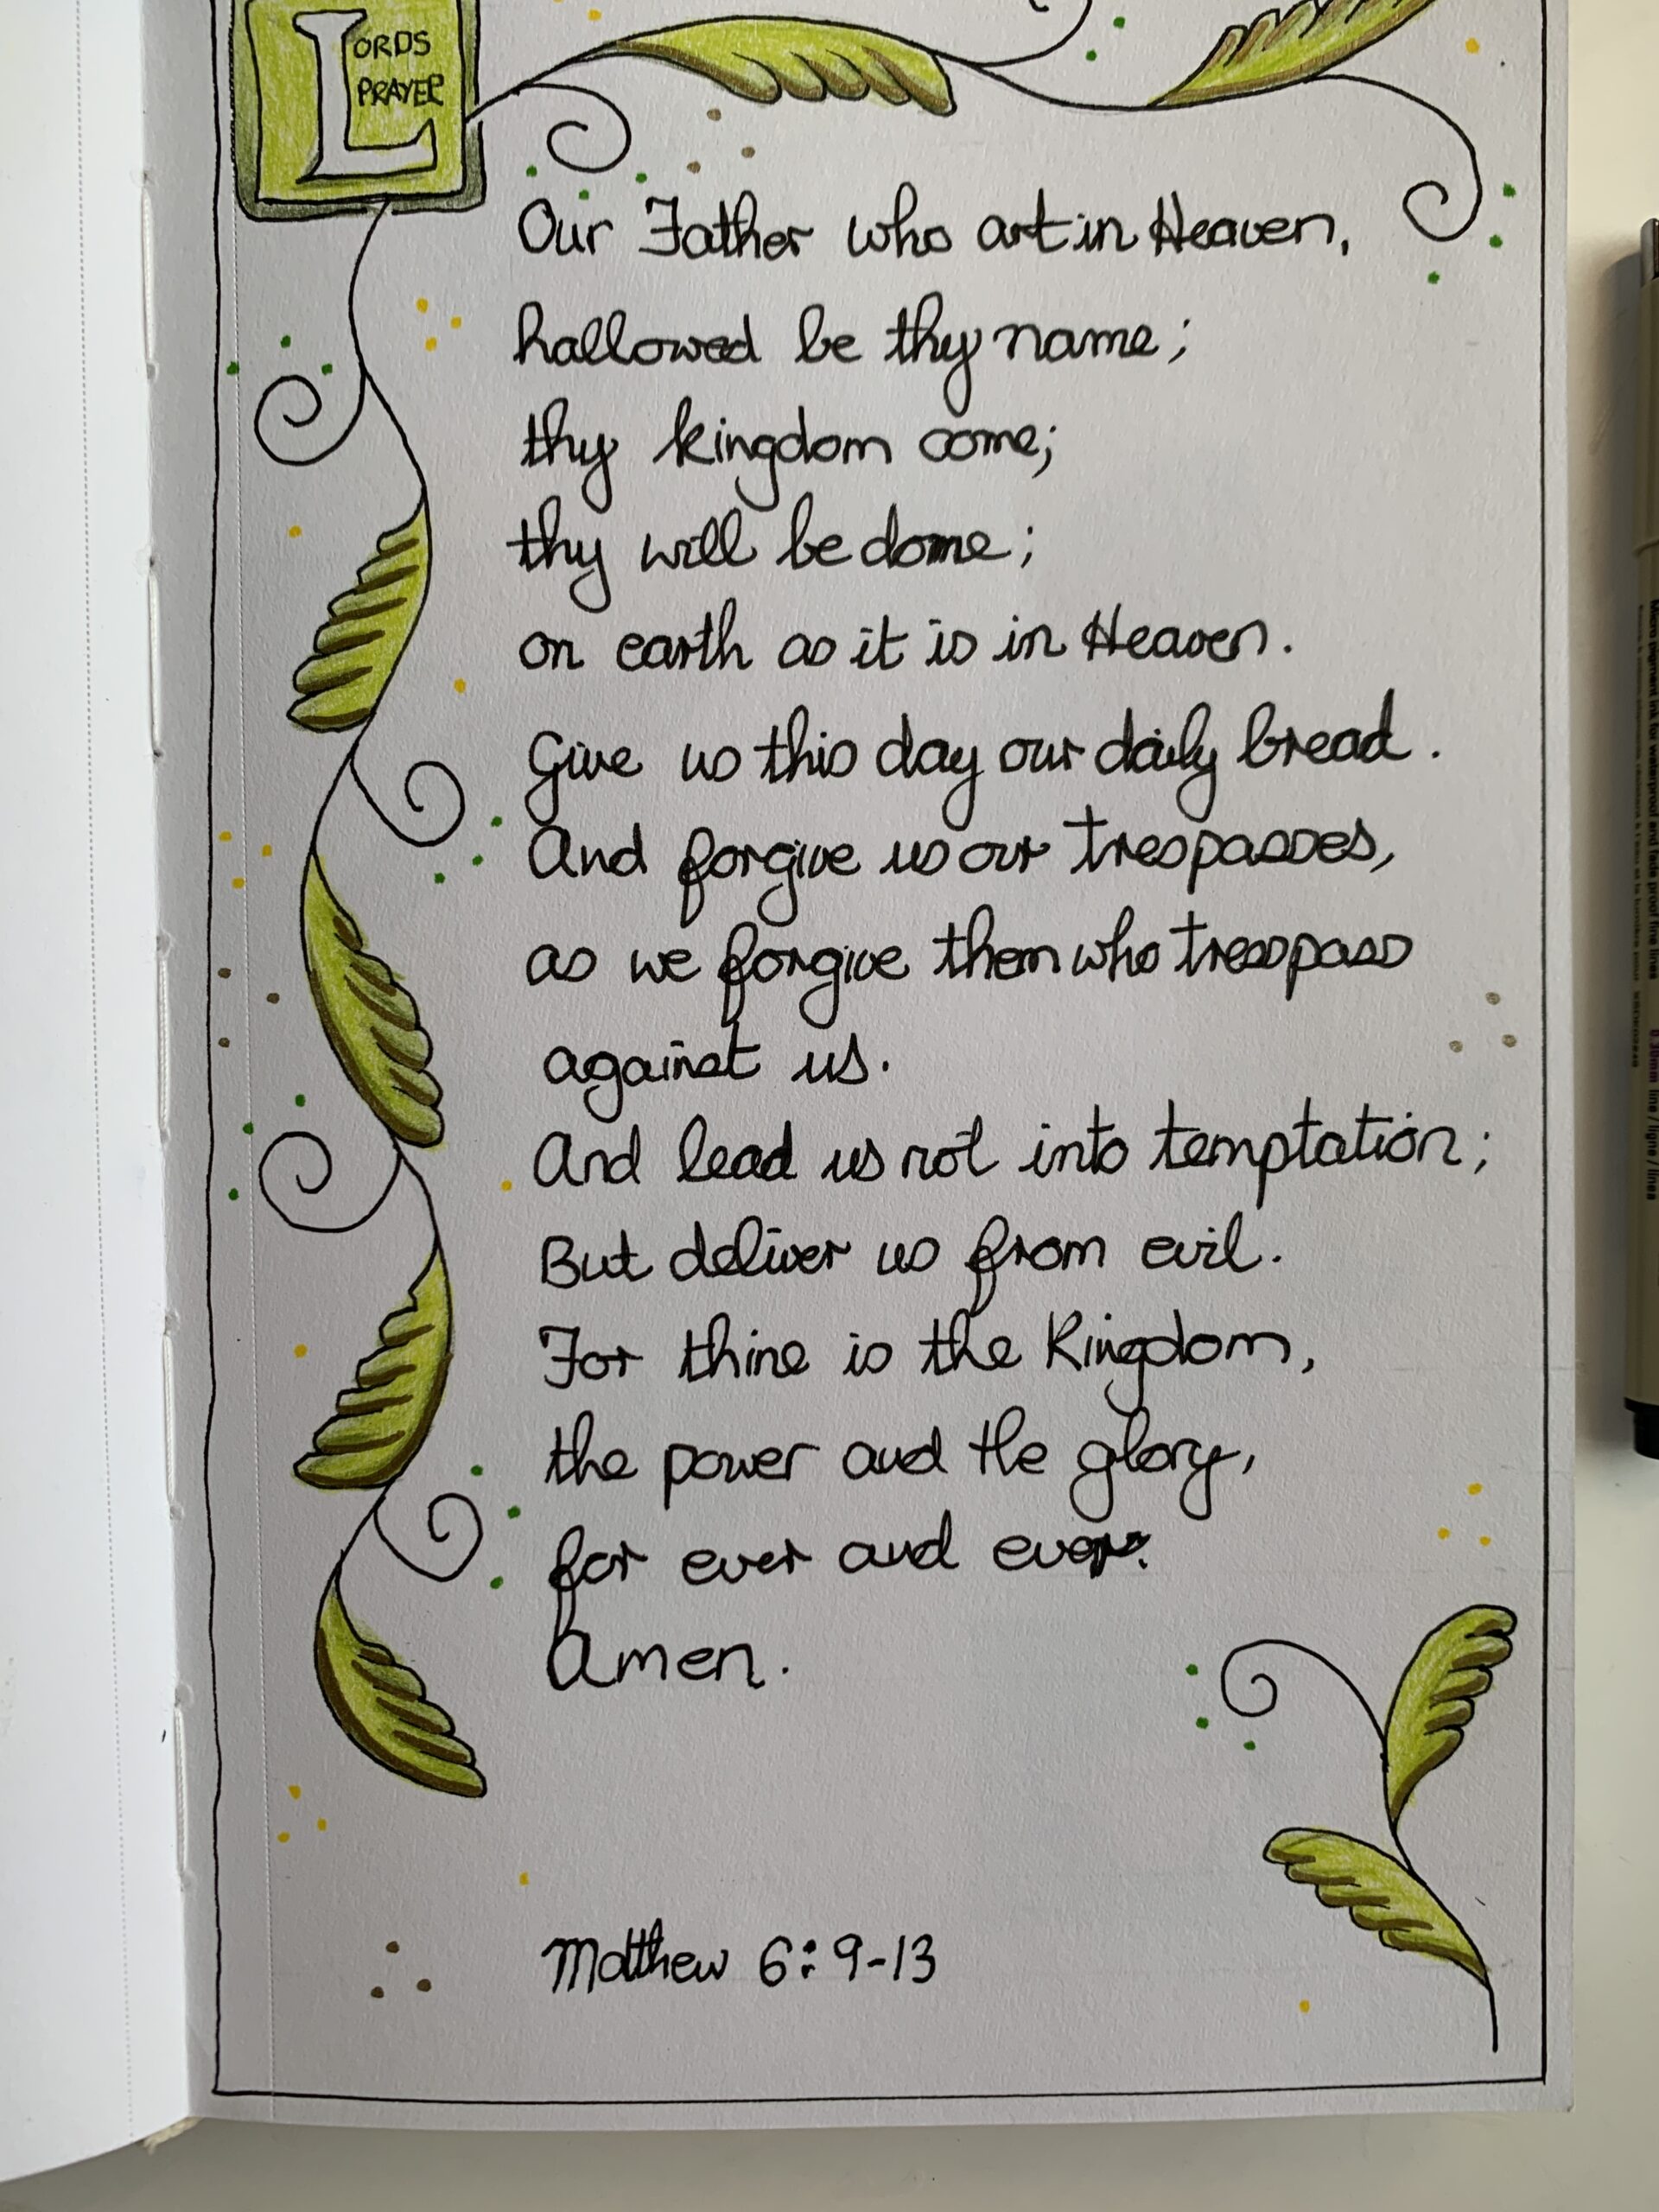 LORDS
PRAYER
Our Father who art in Heaven,
hallowed be thy name;
thy kingdom come;
thy will be done;
on earth as it is in Heaven.
Give us this day our daily bread.
And forgive us our trespasses,
as we forgive them who trespass
against us.
And lead us not into temptation;
But deliver us from evil.
For thine is the Kingdom,
the power and the glory,
for ever and ever.
Amen.
Matthew 6:9-13
Micro pigment ink for waterproof and fade proof fine lines
line / ligne / lines